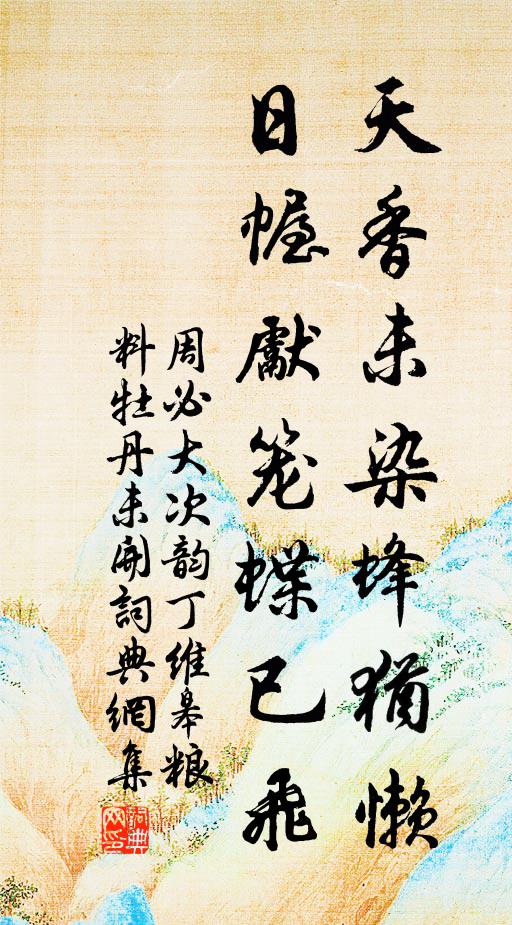 天香未染蜂犹懒
日幄獻笼蝶已飛
周必大次韵丁维皋粮
料牡丹未開詞典網集
詞典
网印